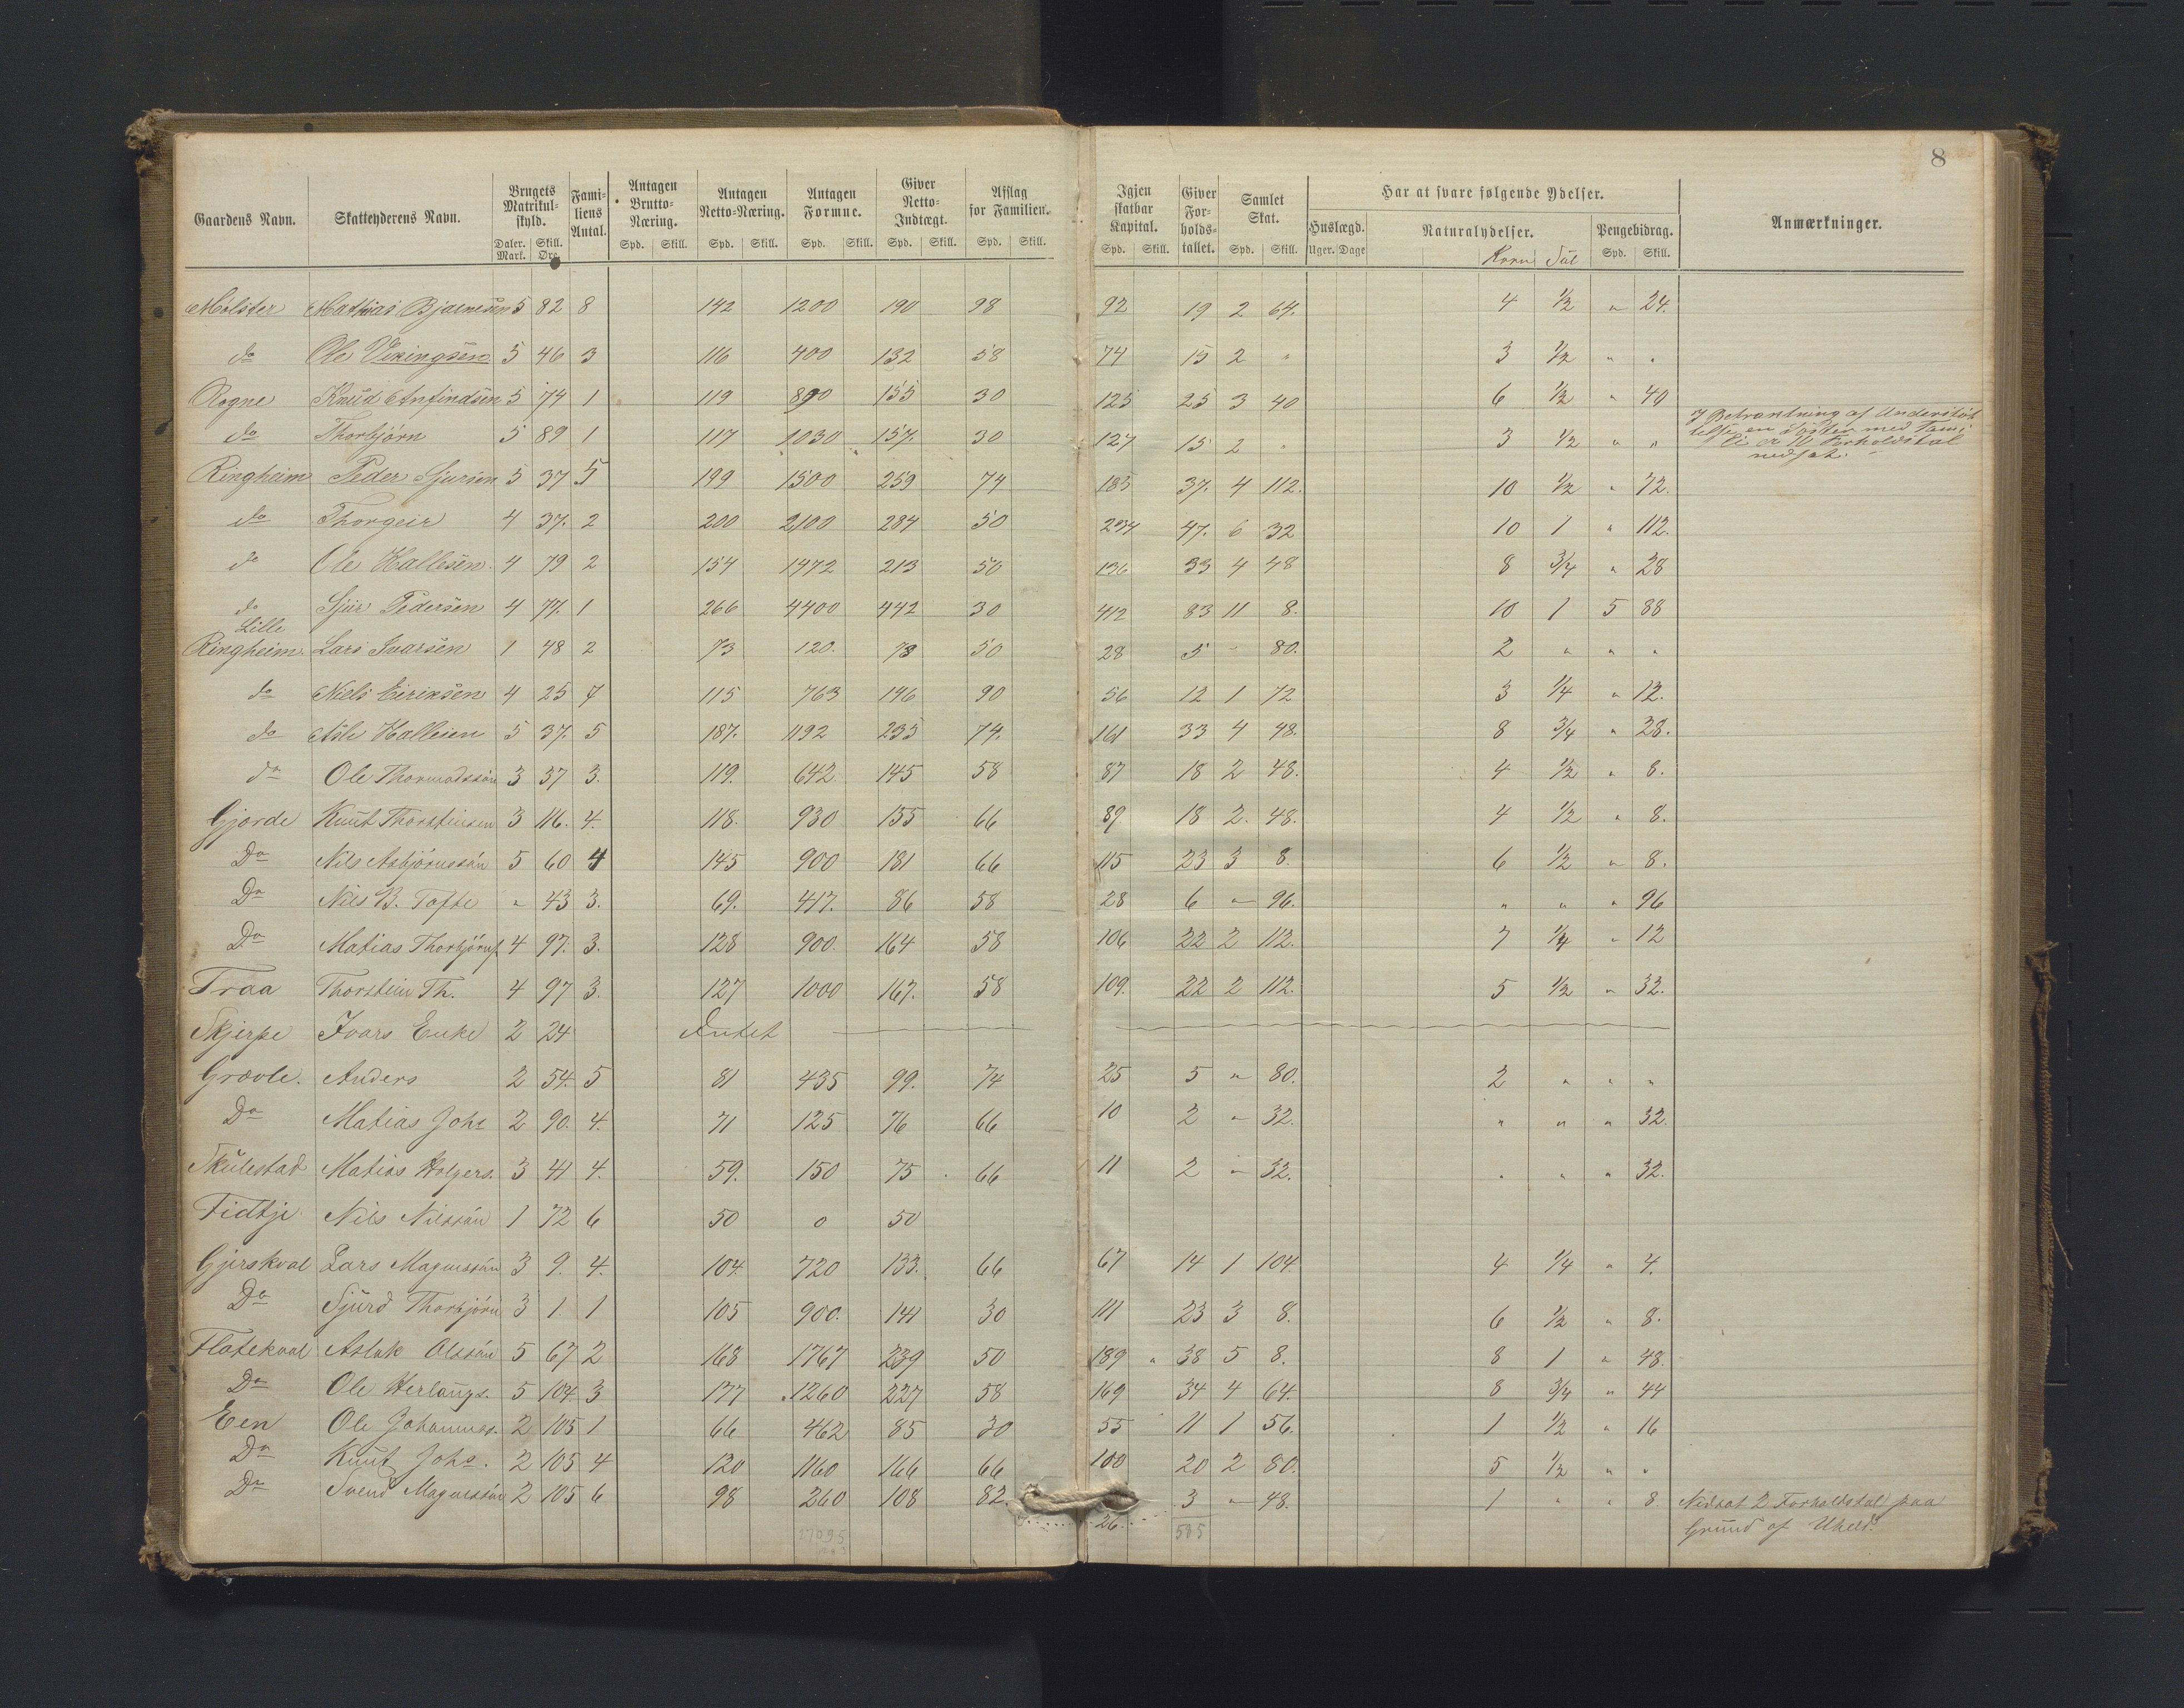 8
Gaardens Navn. Skatteyderens Navn. Brugets Matrikulskyld. Familiens Antal. Antagen Brutto-Næring. Antagen Netto-Næring. Antagen Formue. Giver Netto-Indtægt. Afslag for Familien. Igjen skatbar Kapital. Giver Forholdstallet. Samlet Skat. Har at svare følgende Ydelser. Anmærkninger.
Huslægd. Naturalydelser. Pengebidrag.
Daler. Skill. Spd. Skill. Spd. Skill. Spd. Skill. Spd. Skill. Spd. Skill. Spd. Skill. Spd. Skill. Uger. Dage Korn Sul Spd. Skill.
Mark. Øre
Mølster Mathias Bjarnesen 5 82 8 142 1200 190 98 92 19 2 64. 4 1/2 " 24.
do Ole Vikingsen 5 46 3 116 400 132 58 74 15 2 " 3 1/2 " "
Rogne Knud Anfindsen 5 74 1 119 890 155 30 125 25 3 40 6 1/2 " 40
do Thorbjørn 5 89 1 117 1030 157. 30 127 15 2 " 3 1/2 " " I Betragtning af Understøt
telse en Søster med Fami
li er 10 Forholdstal
nedsat.
Ringheim Peder Sjursen 5 37 5 199 1500 259 74 185 37. 4 112. 10 1/2 " 72.
do Thorgeir 4 37. 2 200 2100 284 50 234 47. 6 32 10 1 " 112.
do Ole Hallesen. 4 79 2 154 1472 213 50 136 33 4 48 8 3/4 " 28
do Sjur Pedersen 4 77. 1 266 4400 442 30 412 83 11 8. 10 1 5 88
Lille
Ringheim. Lars Ivarsen 1 48 2 73 120. 78 50 28 5 - 80. 2 " " "
do Niels Eiriksen 4 25 7 115 763 146 90 56 12 1 72 3 1/4 " 12.
do Asle Hallesen 5 37. 5 187. 1192 235 74. 161 33 4 48. 8 3/4 " 28.
do Ole Thormodssøn 3 37 3. 119. 642 145 58 87 18 2 48. 4 1/2 " 8.
Gjerde Knut Thorsteinsen 3 116. 4. 118. 930 155 66 89 18 2. 48. 4 1/2 " 8.
Do Nils Asbjørnssøn 5 60 4 145 900 181 66 115 23 3 8. 6 1/2 " 8.
Do Nils B. Tofte " 43 3. 69. 417. 86 58 28 6 " 96. " " " 96
Do Matias Thorbjørns. 4 97. 3. 128 900. 164 58 106 22 2 112. 7 1/4 " 12
Traa Thorstein Th. 4 97 3. 127 1000 167. 58 109. 22 2 112. 5 1/2 " 32.
Skjerpe Ivars Enke 2 24 Intet
Grøvle. Anders 2 54. 5 81 435 99. 74 25 5 " 80. 2 " " "
Do Matias Johs 2 90. 4. 71 125 76 66 10 2 " 32. " " " 32.
Skulestad Matias Holgers. 3 41 4. 59. 150 75 66 11 2 " 32. " " " 32.
Fidtje. Nils Nilssøn 1 72 6 50 0 50
Gjerskval Lars Magnussøn 3 9. 4. 104 720 133. 66 67 14 1 104. 4 1/4 " 4.
Do Sjurd Thorbjørn 3 1. 1 105 900. 141 30 111 23 3 8. 6 1/2 " 8.
Flatekval Aslak Olssøn 5 67 2 168 1767 239 50 189 " 38 5 8. 8 1 " 48.
Do Ole Herlaugs. 5 104. 3 177 1260 227 58 169 34 4 64. 8 3/4 " 44
Een Ole Johannes. 2 105 1 66 462 85 30 55 11 1 56. 1 1/2 " 16
Do Knut Johs. 2 105 4 120 1160 166 66 100 20 2 80. 5 1/2 " "
Do Svend Magnussøn 2 105 6 98 260 108 82. 26. 3 " 48. 1 " " 8 Nedsat 2 Forholdstal paa
Grund af Uheld.
27095 505